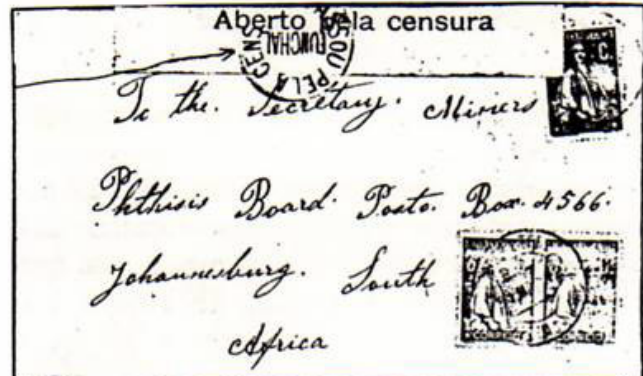 Aberto pela censura
PASSOU PELA CENS
FUNCHAL
To the. Secretary. Miners
Phthisis Board. Posto. Box. 4566.
Johannesburg. South
Africa